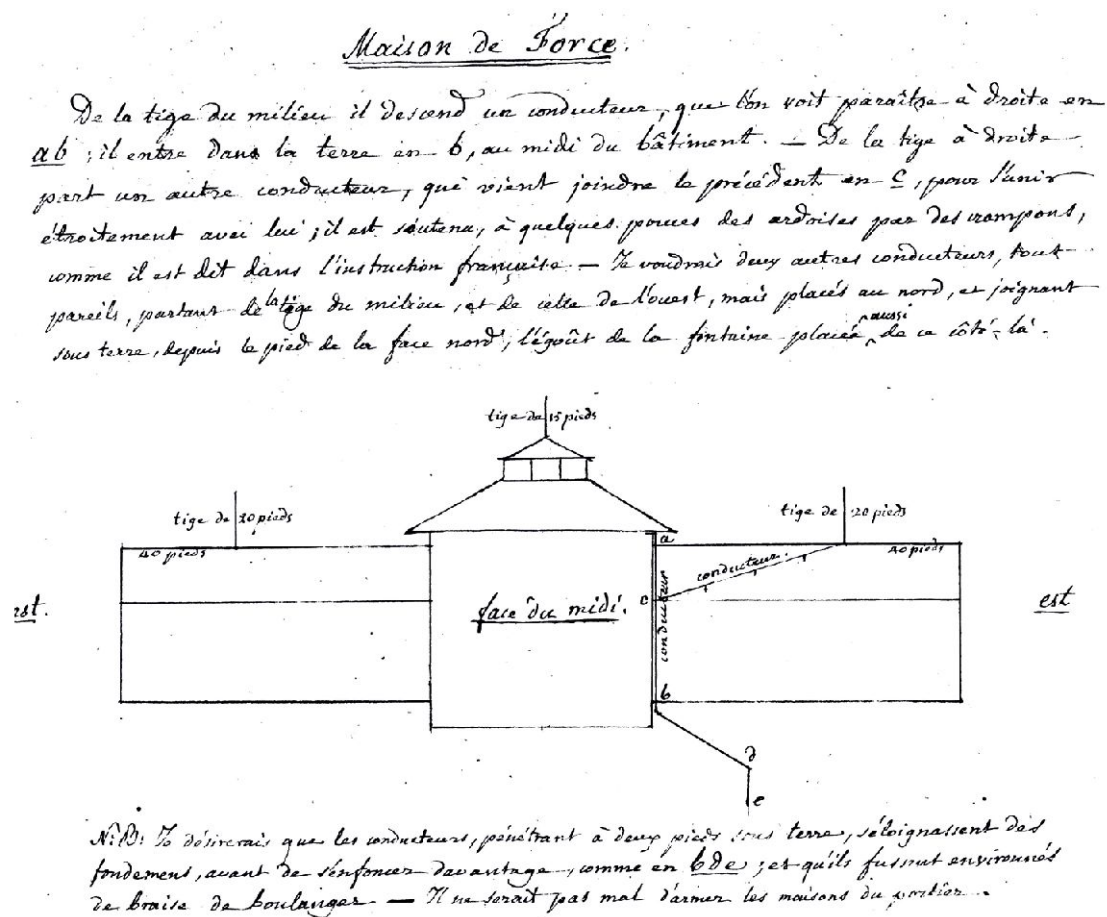 Maison de Force.
De la tige du milieu il descend un conducteur, que l'on voit paraître à droite en
ab ; il entre dans la terre en b, au midi du bâtiment. — De la tige à droite
part un autre conducteur, qui vient joindre le précédent en c, pour s'unir
étroitement avec lui ; il est soutenu, à quelques pouces des ardoises par des crampons,
comme il est dit dans l'instruction française. — Je voudrais deux autres conducteurs, tout
pareils, partant de la tige du milieu, et de celle de l'ouest, mais placés au nord, et joignant
sous terre, depuis le pied de la face nord, l'égoût de la fontaine placée aussi de ce côté-là.
tige de 15 pieds
tige de 20 pieds
tige de 20 pieds
40 pieds
a
40 pieds
conducteur.
c
conducteur
face du midi.
est
b
d
e
N.B: Je désirerais que les conducteurs, pénétrant à deux pieds sous terre, s'éloignassent des
fondemens, avant de s'enfoncer davantage, comme en bde ; et qu'ils fussent environnés
de braise de boulanger — Il ne serait pas mal d'armer les maisons du portier.